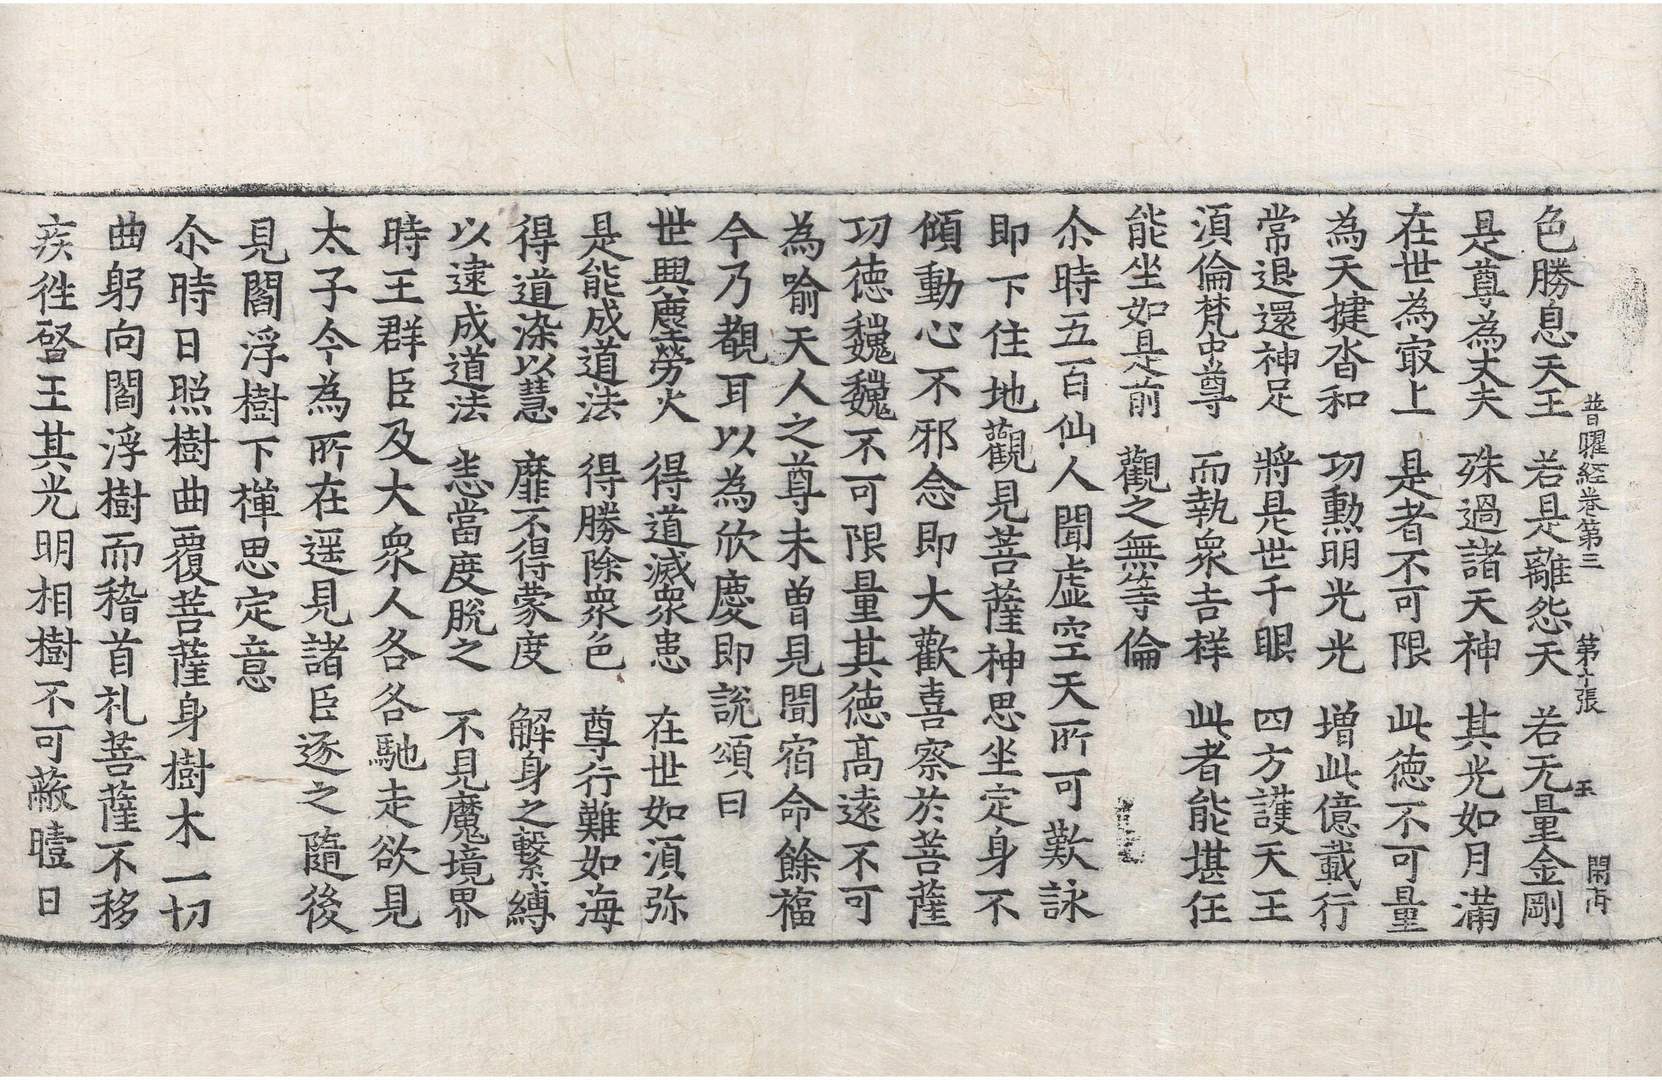 普曜經卷第三 第十張 玉 開丙
色勝息天王 若是離怨天 若无量金剛
是尊為丈夫 殊過諸天神 其光如月滿
在世為㝡上 是者不可限 此德不可量
為天揵沓和 功勲明光光 增此億載行
常退還神足 將是世千眼 四方護天王
湏倫梵中尊 而執衆吉祥 此者能堪任
能坐如是前 觀之無等倫
尒時五百仙人聞虛空天所可歎詠
即下住地觀見菩薩神思坐定身不
傾動心不邪念即大歡喜察於菩薩
功德巍巍不可限量其德高遠不可
為喻天人之尊未曾見聞宿命餘福
今乃覩耳以為欣慶即說頌曰
世興塵勞火 得道滅衆患 在世如湏弥
是能成道法 得勝除衆色 尊行難如海
得道染以慧 靡不得蒙度 解身之繫縛
以逮成道法 恚當度脫之 不見魔境界
時王群臣及大衆人各各馳走欲見
太子今為所在遥見諸臣逐之隨後
見閻浮樹下禪思定意
尒時日照樹曲覆菩薩身樹木一切
曲躬向閻浮樹而稽首礼菩薩不移
疾徃啓王其光明相樹不可蔽曀日